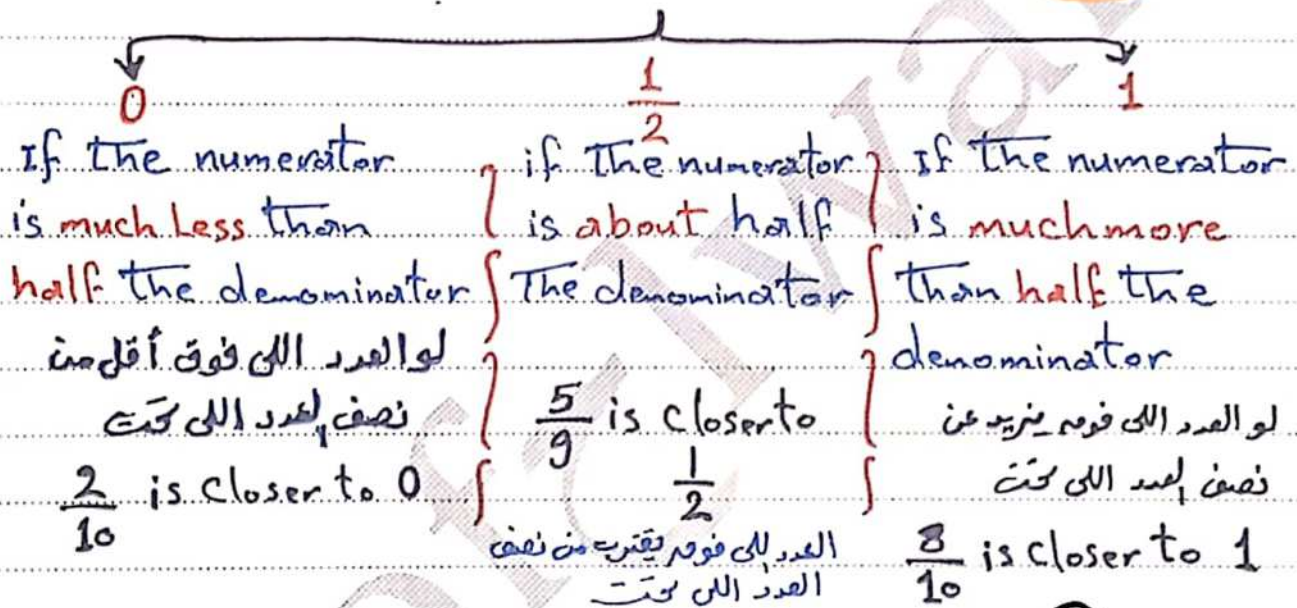 0
If the numerator
is much Less than
half the denominator
لو العدد اللى فوق أقل من
نصف العدد اللى تحت
2/10 is closer to 0
1/2
if the numerator
is about half
The denominator
5/9 is closer to
1/2
العدد اللى فوق يقترب من نصف
العدد اللى تحت
1
If the numerator
is much more
than half the
denominator
لو العدد اللى فوق يزيد عن
نصف العدد اللى تحت
8/10 is closer to 1